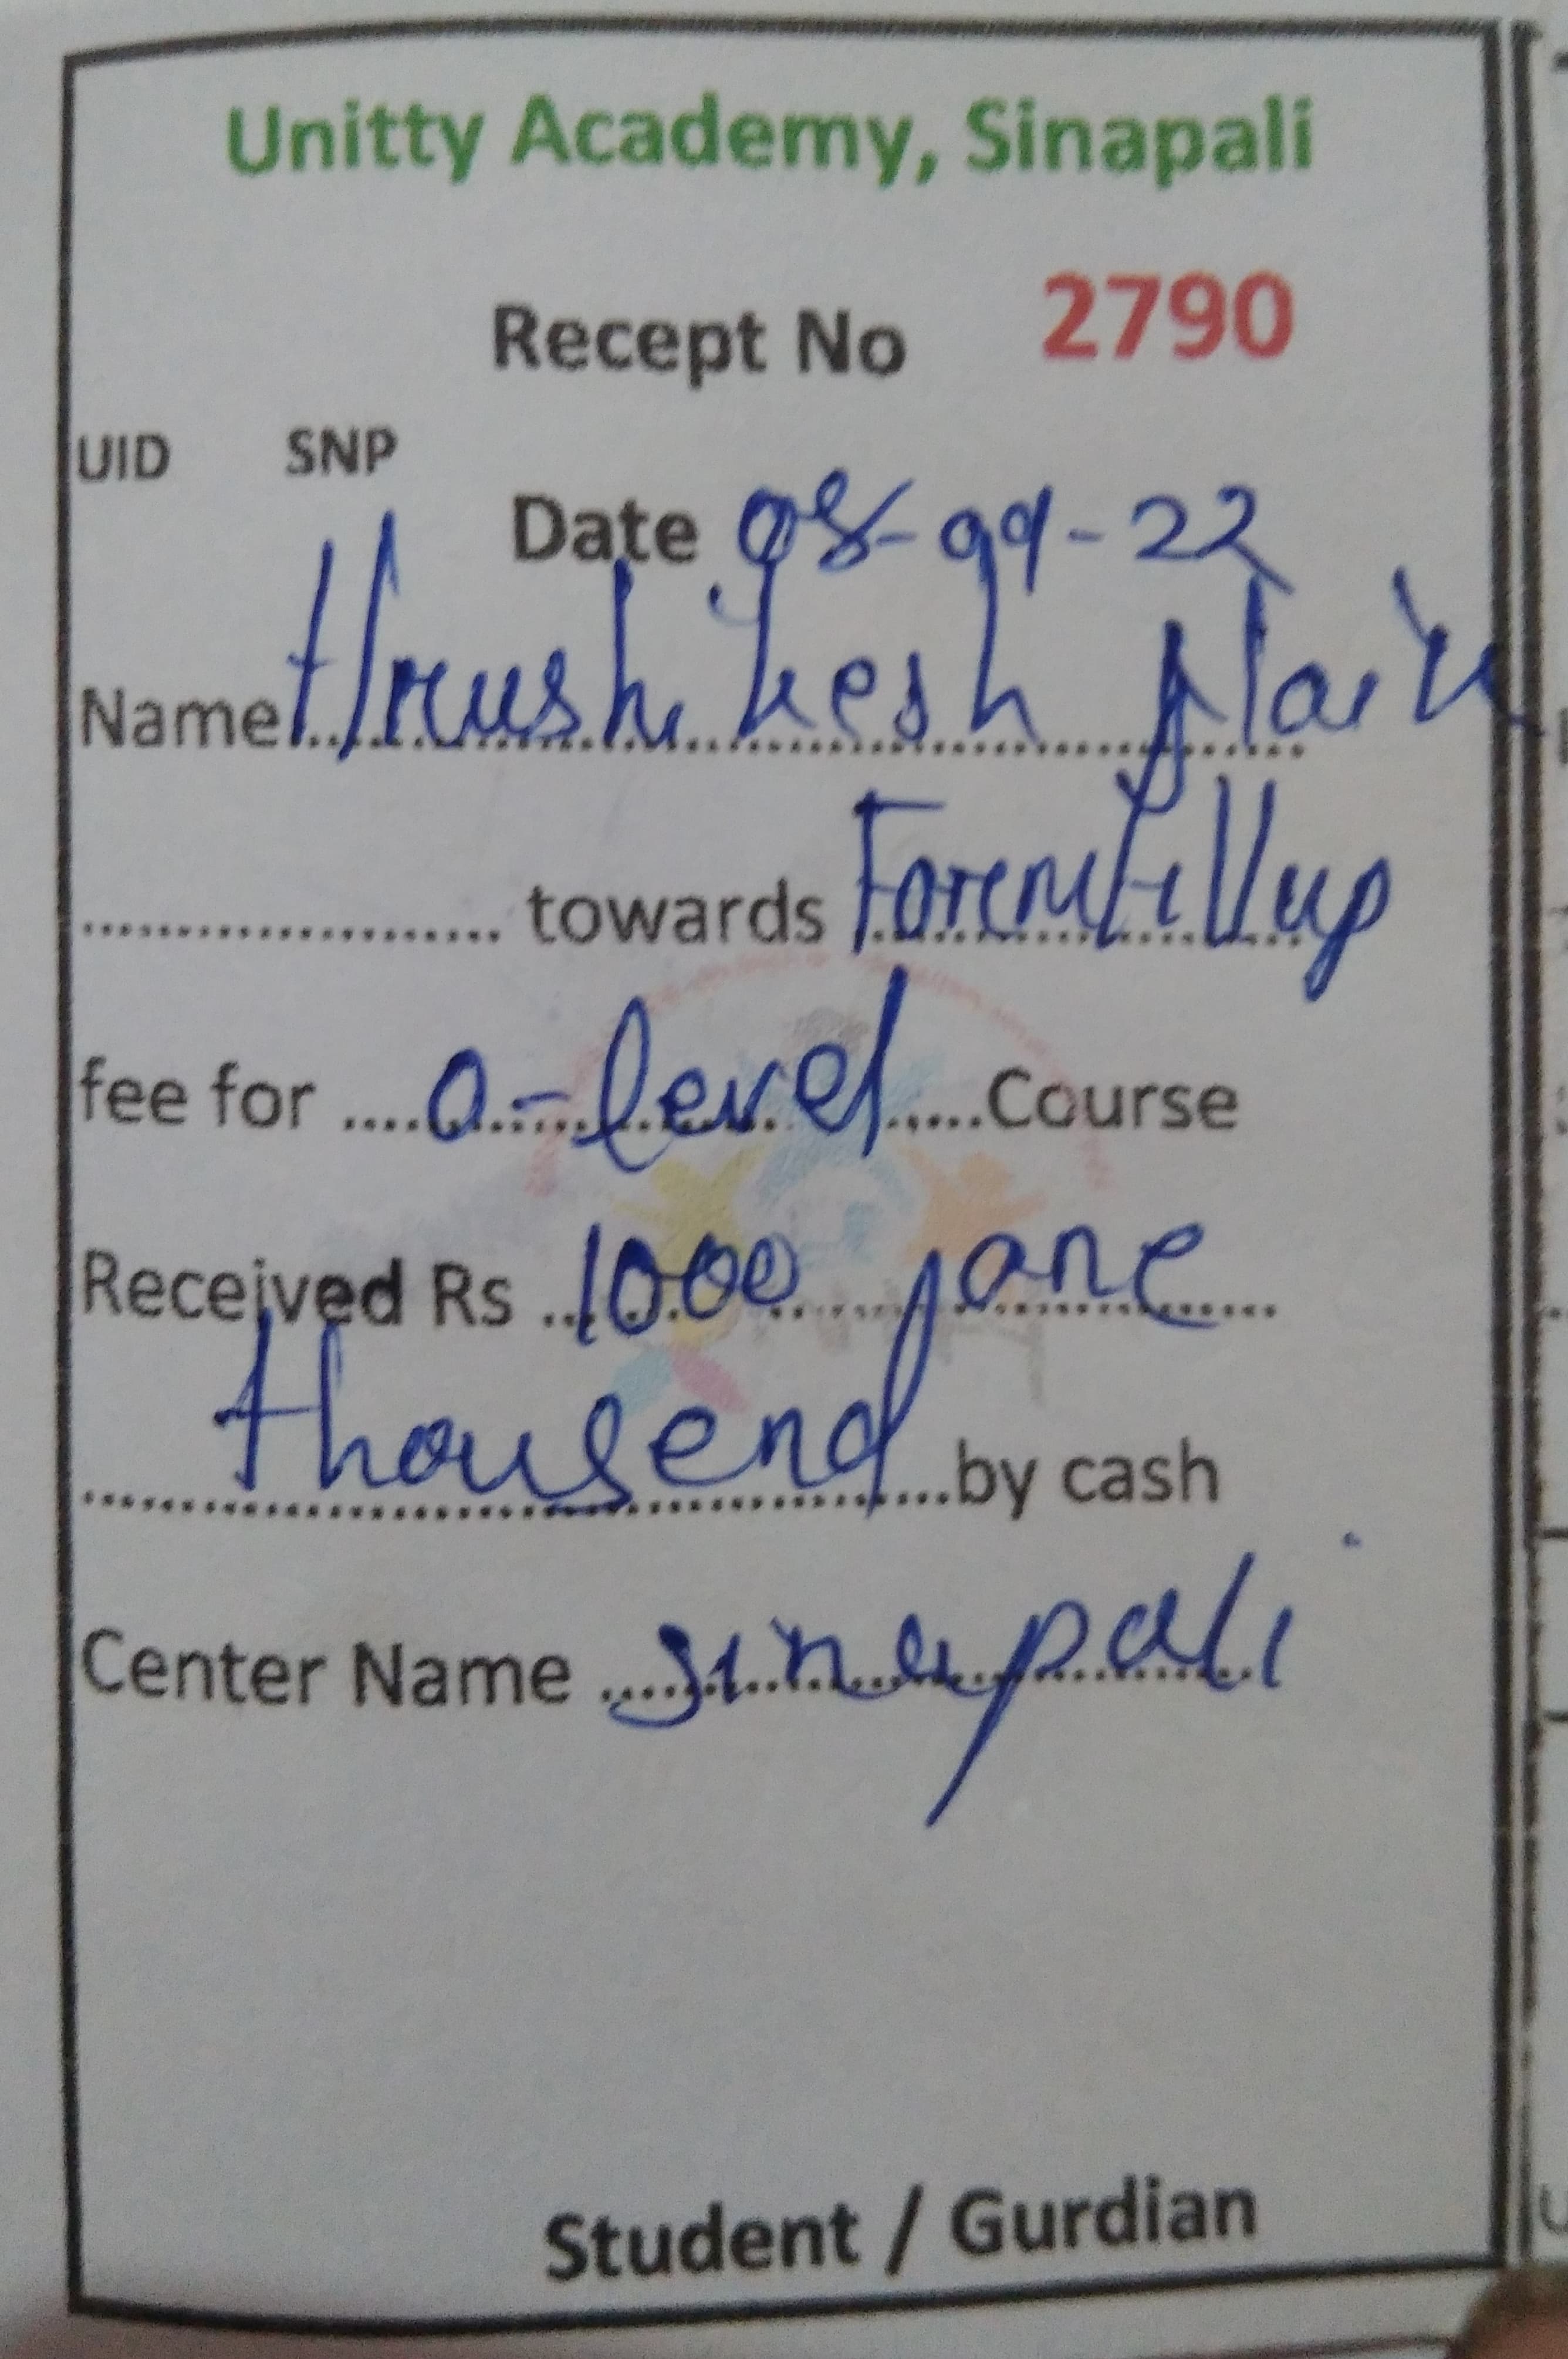 Unitty Academy, Sinapali
Recept No 2790
UID SNP
Date 08-09-22
Name Hrushikesh Naik
.................... towards Formfillup
fee for ....O-level.....Course
Received Rs ...1000 one
thousend....by cash
Center Name ....sinapali
Student / Gurdian